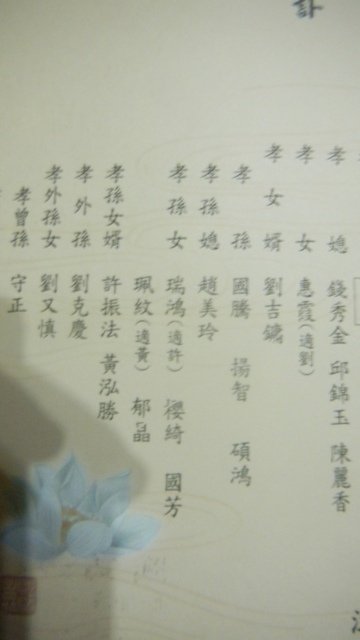 訃
孝媳 錢秀金 邱錦玉 陳麗香
孝女 惠霞(適劉)
孝女婿 劉吉鏞
孝孫 國騰 揚智 碩鴻
孝孫媳 趙美玲
孝孫女 瑞鴻(適許) 櫻綺 國芳
珮紋(適黃) 郁晶
孝孫女婿 許振法 黃泓勝
孝外孫 劉克慶
孝外孫女 劉又慎
孝曾孫 守正